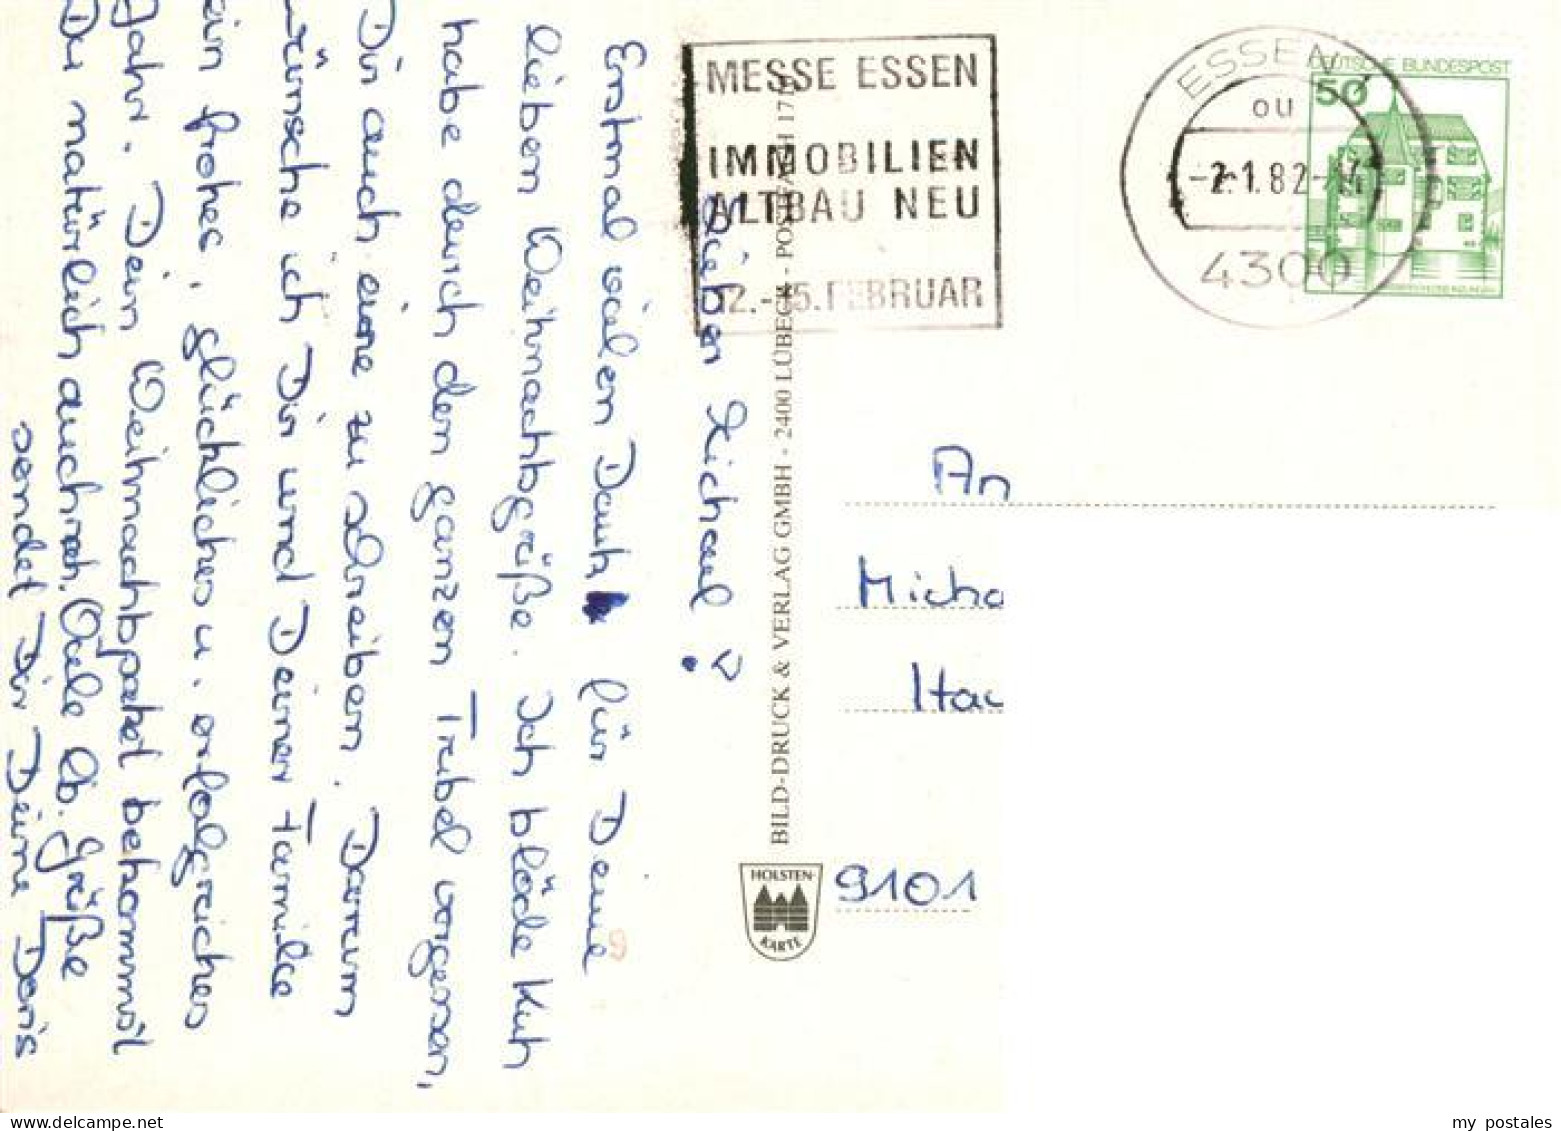 Lieber Michael!
Erstmal vielen Dank für Deine
lieben Weihnachtsgrüße. Ich blöde Kuh
habe durch den ganzen Trubel vergessen,
Dir auch eine zu schreiben. Darum
wünsche ich Dir und Deiner Familie
ein frohes, glückliches u. erfolgreiches
Jahr. Dein Weihnachtspaket bekommst
Du natürlich auch noch. Viele lb. Grüße
sendet Dir Deine Doris
MESSE ESSEN
IMMOBILIEN
ALTBAU NEU
12.-15. FEBRUAR
BILD-DRUCK & VERLAG GMBH - 2400 LÜBECK - POSTFACH 17
HOLSTEN-
KARTE
ESSEN
ou
-2.1.82-14
4300
DEUTSCHE BUNDESPOST
50
An
Micha
Hau
9101
my postales